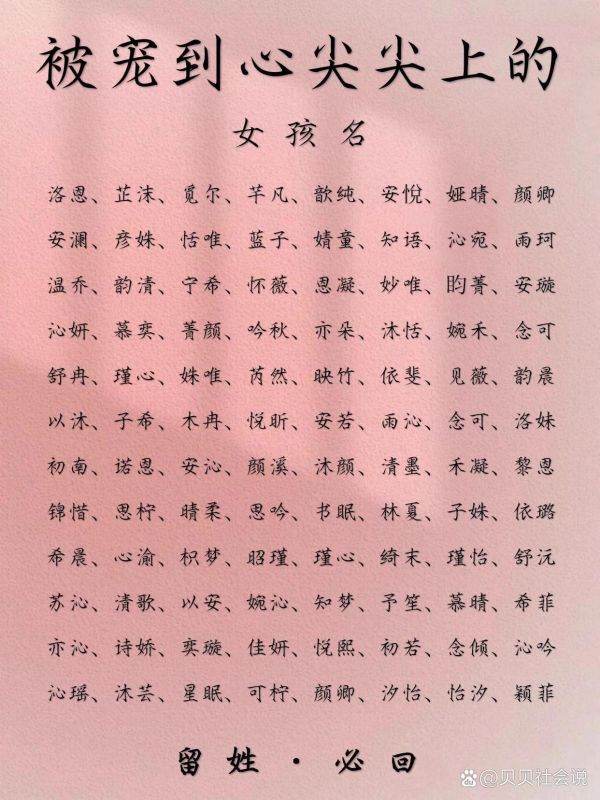 被宠到心尖尖上的
女孩名
洛恩、芷沫、觅尔、芊凡、歆纯、安悦、娅晴、颜卿
安澜、彦姝、恬唯、蓝子、婧童、知语、沁宛、雨珂
温乔、韵清、宁希、怀薇、恩凝、妙唯、昀菁、安璇
沁妍、慕奕、菁颜、吟秋、亦朵、沐恬、婉禾、念可
舒冉、瑾心、姝唯、芮然、映竹、依斐、见薇、韵晨
以沐、子希、木冉、悦昕、安若、雨沁、念可、洛妹
初南、诺恩、安沁、颜溪、沐颜、清墨、禾凝、黎恩
锦惜、思柠、晴柔、思吟、书眠、林夏、子姝、依璐
希晨、心渝、枳梦、昭瑾、瑾心、绮末、瑾怡、舒沅
苏沁、清歌、以安、婉沁、知梦、予笙、慕晴、希菲
亦沁、诗娇、奕璇、佳妍、悦熙、初若、念倾、沁吟
沁瑶、沐芸、星眠、可柠、颜卿、汐怡、怡汐、颖菲
留姓·必回
du @贝贝社会说